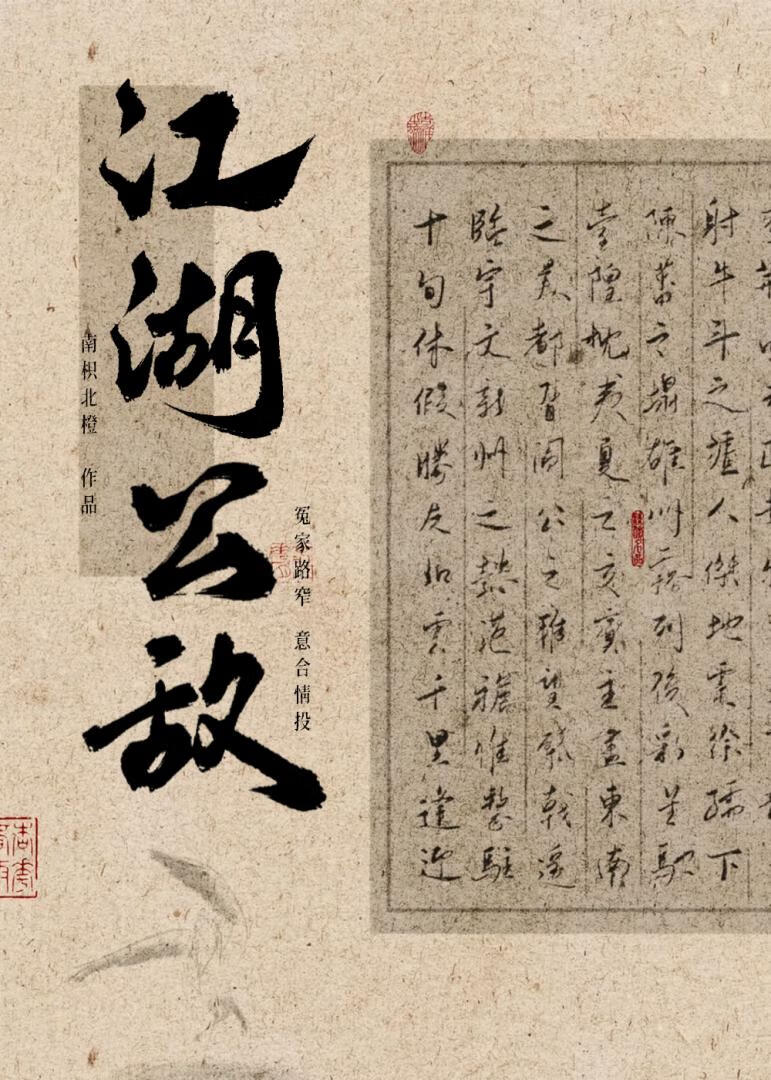 江湖公敌
南枳北橙 作品
冤家路窄 意合情投
射牛斗之墟人傑地靈徐孺下
陳蕃之榻雄州霧列俊彩星馳
臺隍枕夷夏之交賓主盡東南
之美都督閻公之雅望棨戟遙
臨宇文新州之懿范襜帷暫駐
十旬休假勝友如雲千里逢迎